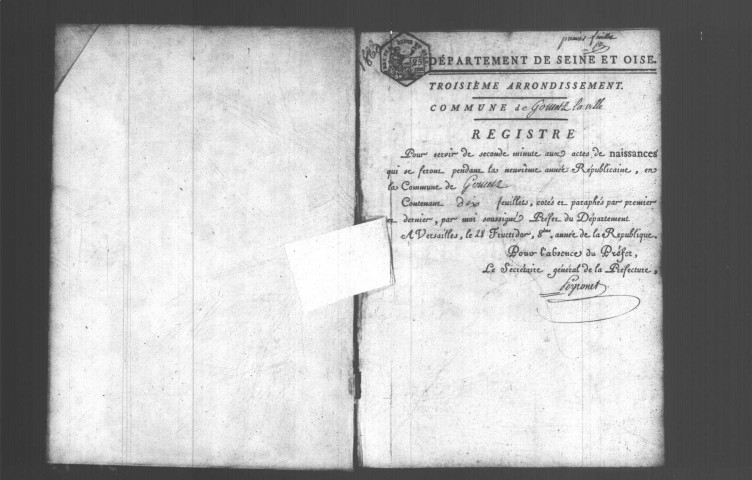 premier feuillet
DÉPARTEMENT DE SEINE ET OISE.
TROISIÈME ARRONDISSEMENT.
COMMUNE de Goussainville
REGISTRE
Pour servir de seconde minute aux actes de naissances
qui se feront pendant la neuvième année Républicaine, en
la Commune de
Contenant dix feuillets, cotés et paraphés par premier
et dernier, par moi soussigné Préfet du Département
A Versailles, le 28 Fructidor, 8ème. année de la République.
Pour l'absence du Préfet,
Le Secrétaire général de la Préfecture,